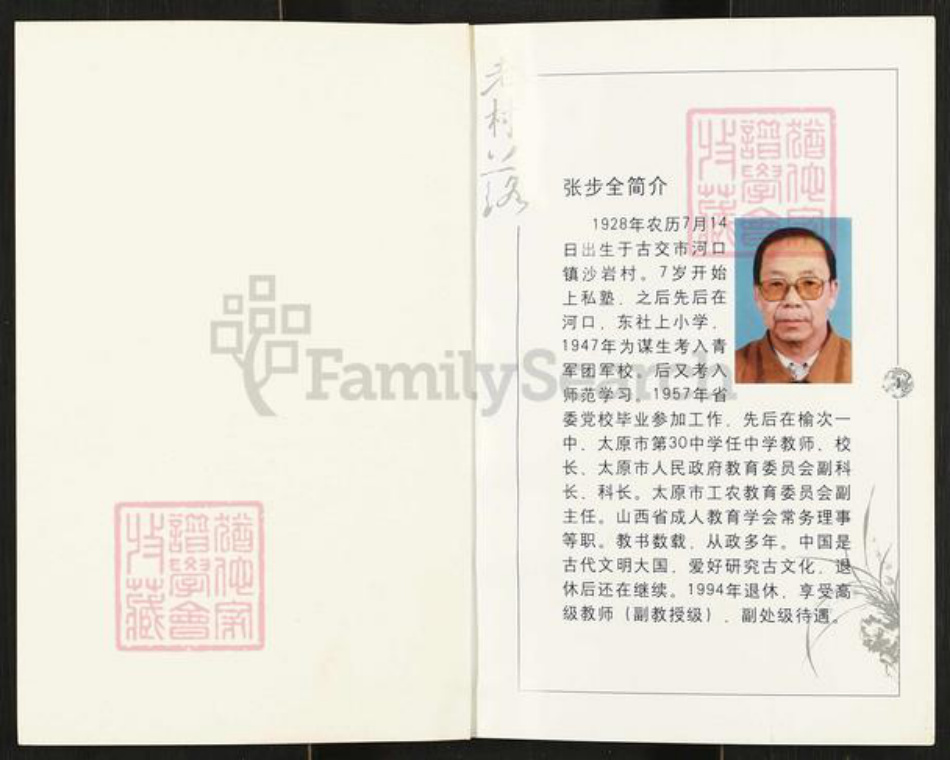 张步全简介
1928年农历7月14
日出生于古交市河口
镇沙岩村。7岁开始
上私塾，之后先后在
河口，东社上小学，
1947年为谋生考入青
军团军校。后又考入
师范学习，1957年省
委党校毕业参加工作，先后在榆次一
中，太原市第30中学任中学教师、校
长、太原市人民政府教育委员会副科
长、科长。太原市工农教育委员会副
主任。山西省成人教育学会常务理事
等职。教书数载，从政多年。中国是
古代文明大国，爱好研究古文化，退
休后还在继续。1994年退休，享受高
级教师（副教授级），副处级待遇。
FamilySearch